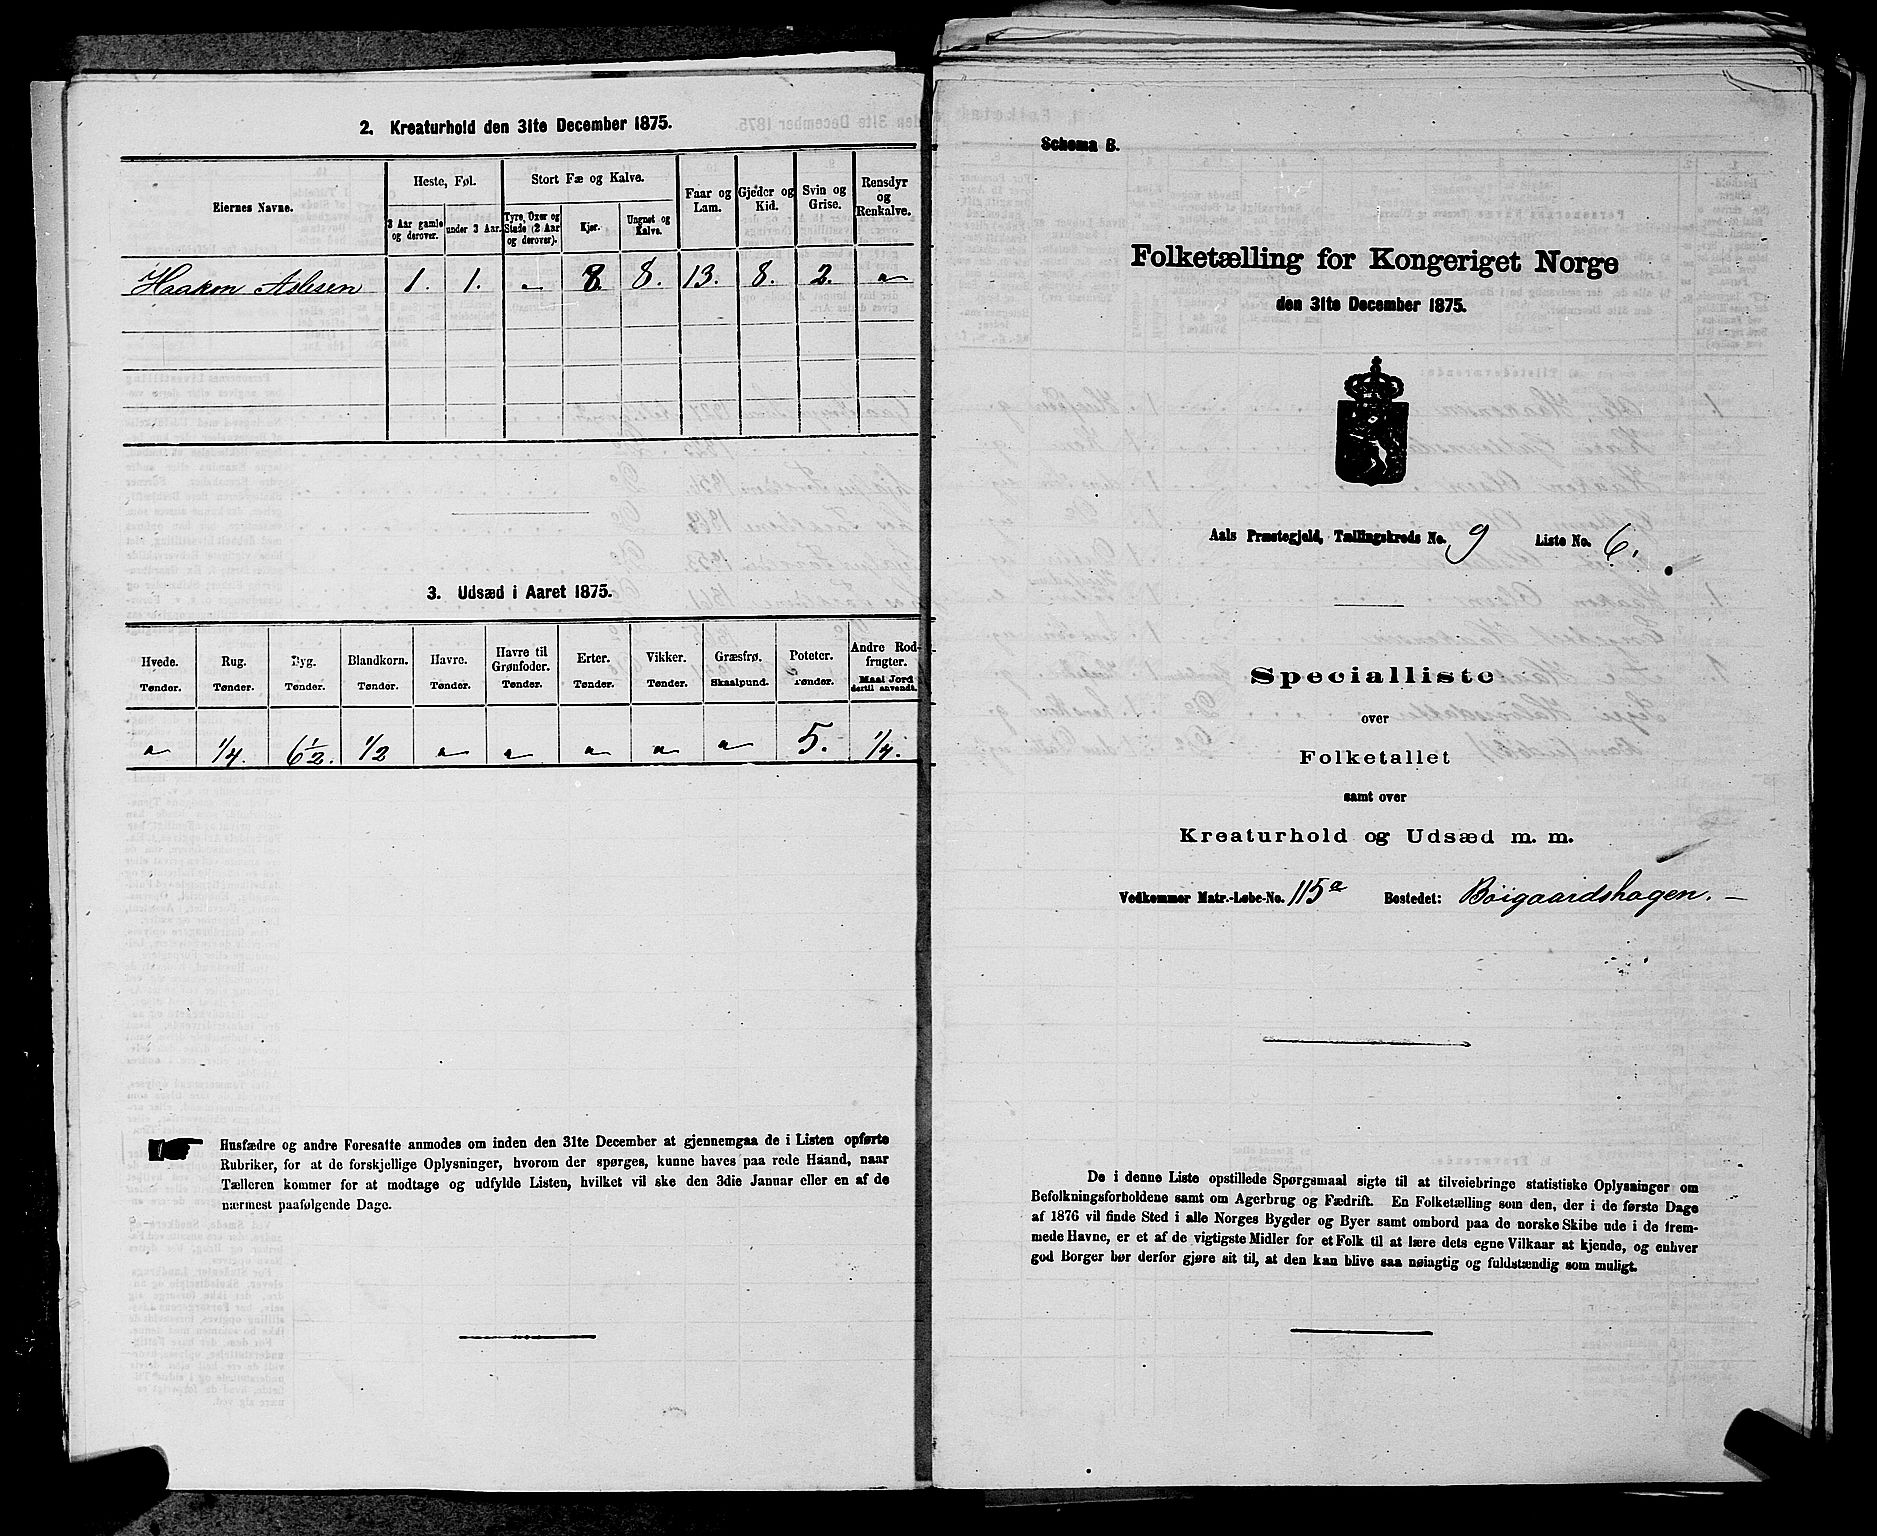 2. Kreaturhold den 31te December 1875.
Eiernes Navne.
Heste, Føl.
3 Aar gamle og derover.
under 3 Aar.
Stort Fæ og Kalve.
Tyre, Oxer og Stude (2 Aar og derover).
Kjør.
Ungnøt og Kalve.
Faar og Lam.
Gjeder og Kid.
Svin og Grise.
Rensdyr og Renkalve.
Haakon Aslesen 1. 1. " 8. 8. 13. 8. 2. "
3. Udsæd i Aaret 1875.
Hvede. Rug. Byg. Blandkorn. Havre. Havre til Grønfoder. Erter. Vikker. Græsfrø. Poteter. Andre Rodfrugter.
Tønder. Tønder. Tønder. Tønder. Tønder. Tønder. Tønder. Tønder. Skaalpund. Tønder. Maal Jord dertil anvendt.
" 1/4. 6 1/2. 1/2 " " " " " 5. 1/4.
Husfædre og andre Foresatte anmodes om inden den 31te December at gjennemgaa de i Listen opførte
Rubriker, for at de forskjellige Oplysninger, hvorom der spørges, kunne haves paa rede Haand, naar
Tælleren kommer for at modtage og udfylde Listen, hvilket vil ske den 3die Januar eller en af de
nærmest paafølgende Dage.
Schema B.
Folketælling for Kongeriget Norge
den 31te December 1875.
Aals Præstegjeld, Tællingskreds No. 9 Liste No. 6.
Specialliste
over
Folketallet
samt over
Kreaturhold og Udsæd m. m.
Vedkommer Matr.-Løbe-No. 115a Bostedet: Bøigaardshagen.
De i denne Liste opstillede Spørgsmaal sigte til at tilveiebringe statistiske Oplysninger om
Befolkningsforholdene samt om Agerbrug og Fædrift. En Folketælling som den, der i de første Dage
af 1876 vil finde Sted i alle Norges Bygder og Byer samt ombord paa de norske Skibe ude i de frem-
mede Havne, er et af de vigtigste Midler for et Folk til at lære dets egne Vilkaar at kjende, og enhver
god Borger bør derfor gjøre sit til, at den kan blive saa nøiagtig og fuldstændig som muligt.